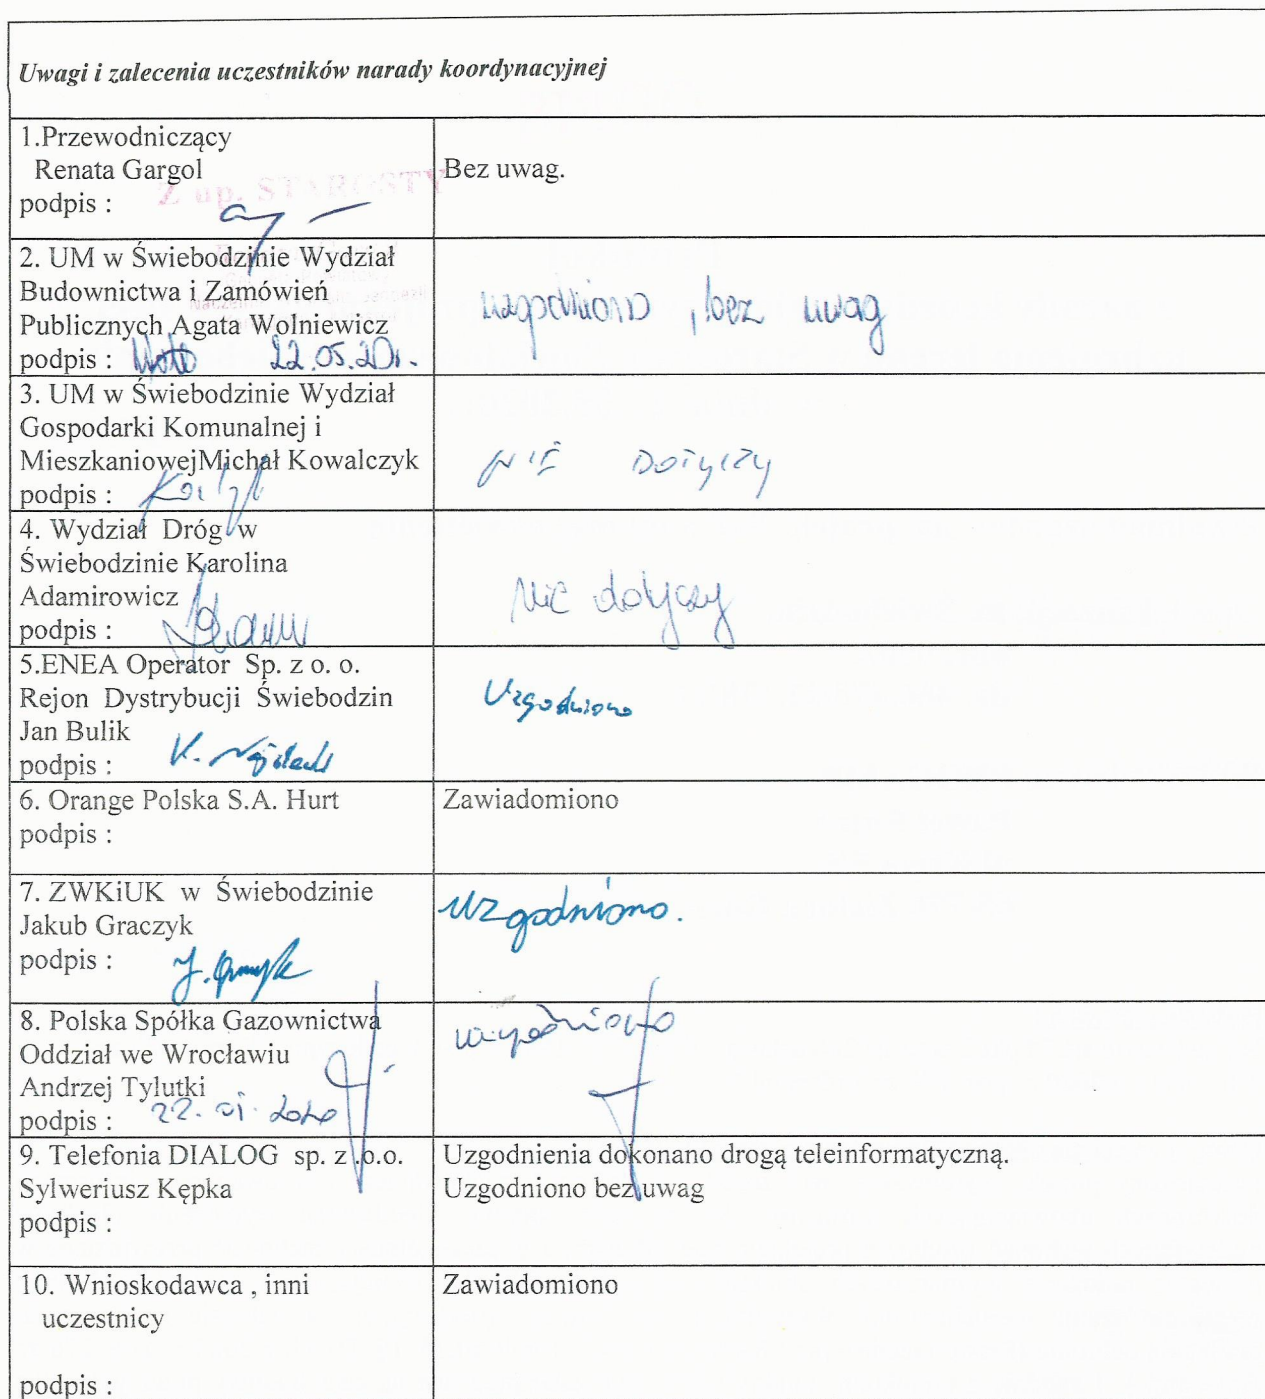 Uwagi i zalecenia uczestników narady koordynacyjnej
1.Przewodniczący
Renata Gargol
podpis :
Z up. STAROSTY
Bez uwag.
2. UM w Świebodzinie Wydział
Budownictwa i Zamówień
Publicznych Agata Wolniewicz
podpis : 22.05.20r.
uzgodniono , bez uwag
3. UM w Świebodzinie Wydział
Gospodarki Komunalnej i
MieszkaniowejMichał Kowalczyk
podpis :
NIE DOTYCZY
4. Wydział Dróg w
Świebodzinie Karolina
Adamirowicz
podpis :
Nie dotyczy
5.ENEA Operator Sp. z o. o.
Rejon Dystrybucji Świebodzin
Jan Bulik
podpis : K.
Uzgodniono
6. Orange Polska S.A. Hurt
podpis :
Zawiadomiono
7. ZWKiUK w Świebodzinie
Jakub Graczyk
podpis :
uzgodniono.
8. Polska Spółka Gazownictwa
Oddział we Wrocławiu
Andrzej Tylutki
podpis :
uzgodniono
9. Telefonia DIALOG sp. z .o.o.
Sylweriusz Kępka
podpis :
Uzgodnienia dokonano drogą teleinformatyczną.
Uzgodniono bez uwag
10. Wnioskodawca , inni
uczestnicy
podpis :
Zawiadomiono